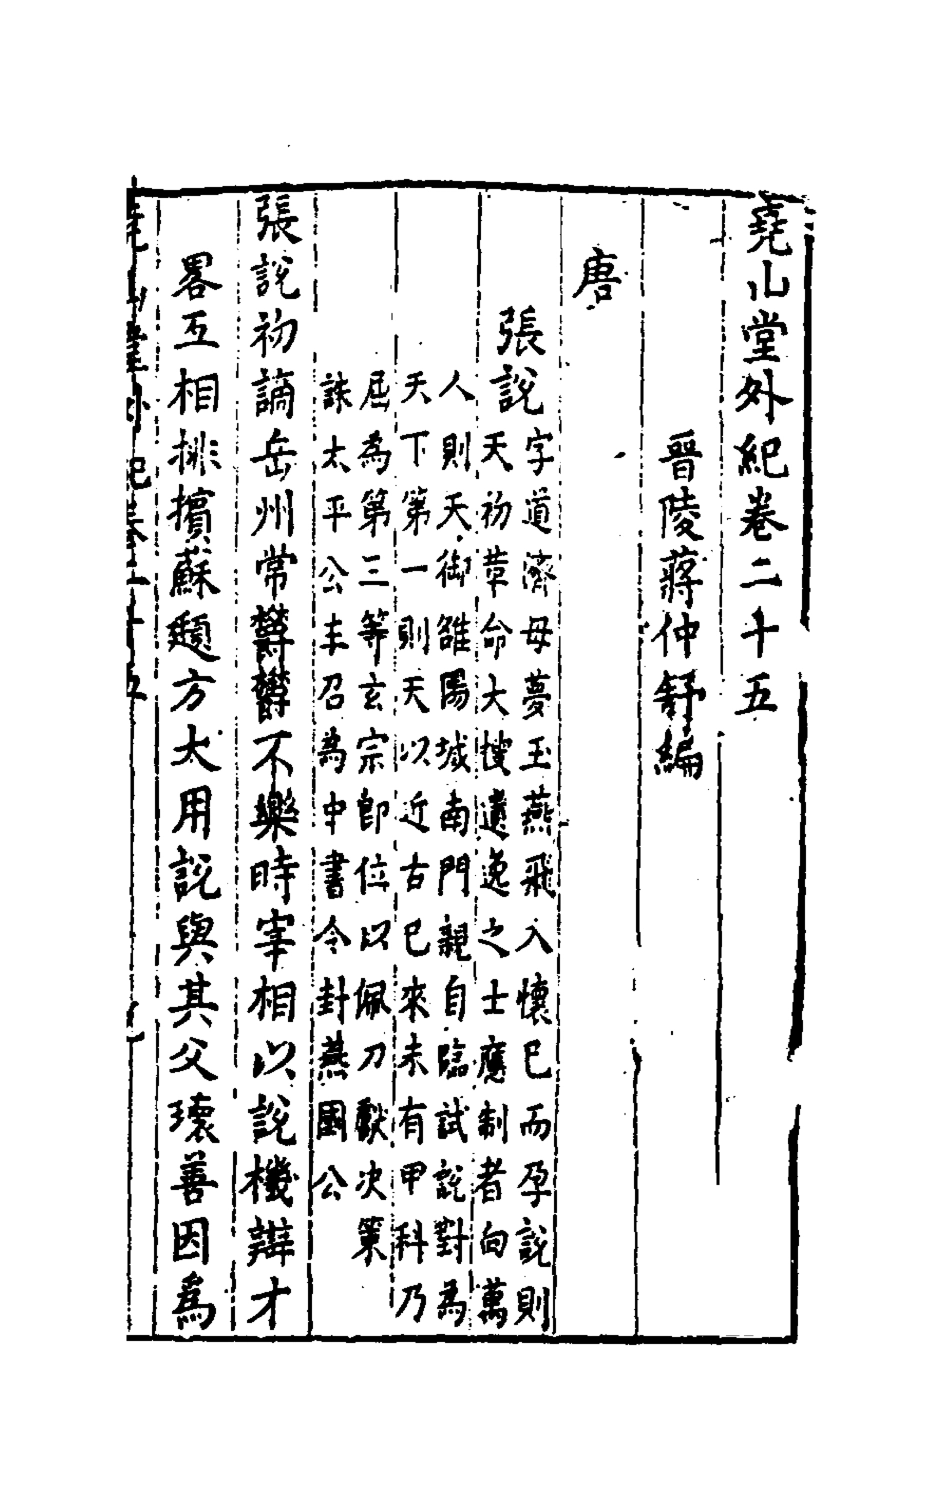 堯山堂外紀卷二十五
晉陵蔣仲舒編
唐
張說
字道濟母夢玉燕飛入懷已而孕說則
天初革命大搜遺逸之士應制者向萬
人則天御雒陽城南門親自臨試說對為
天下第一則天以近古已來未有甲科乃
屈為第三等玄宗即位以佩刀獻决策
誅太平公主召為中書令封燕國公
張說初謫岳州常鬱鬱不樂時宰相以說機辯才
畧互相排擯蘇頲方大用說與其父瓌善因為
堯山堂外紀卷二十五